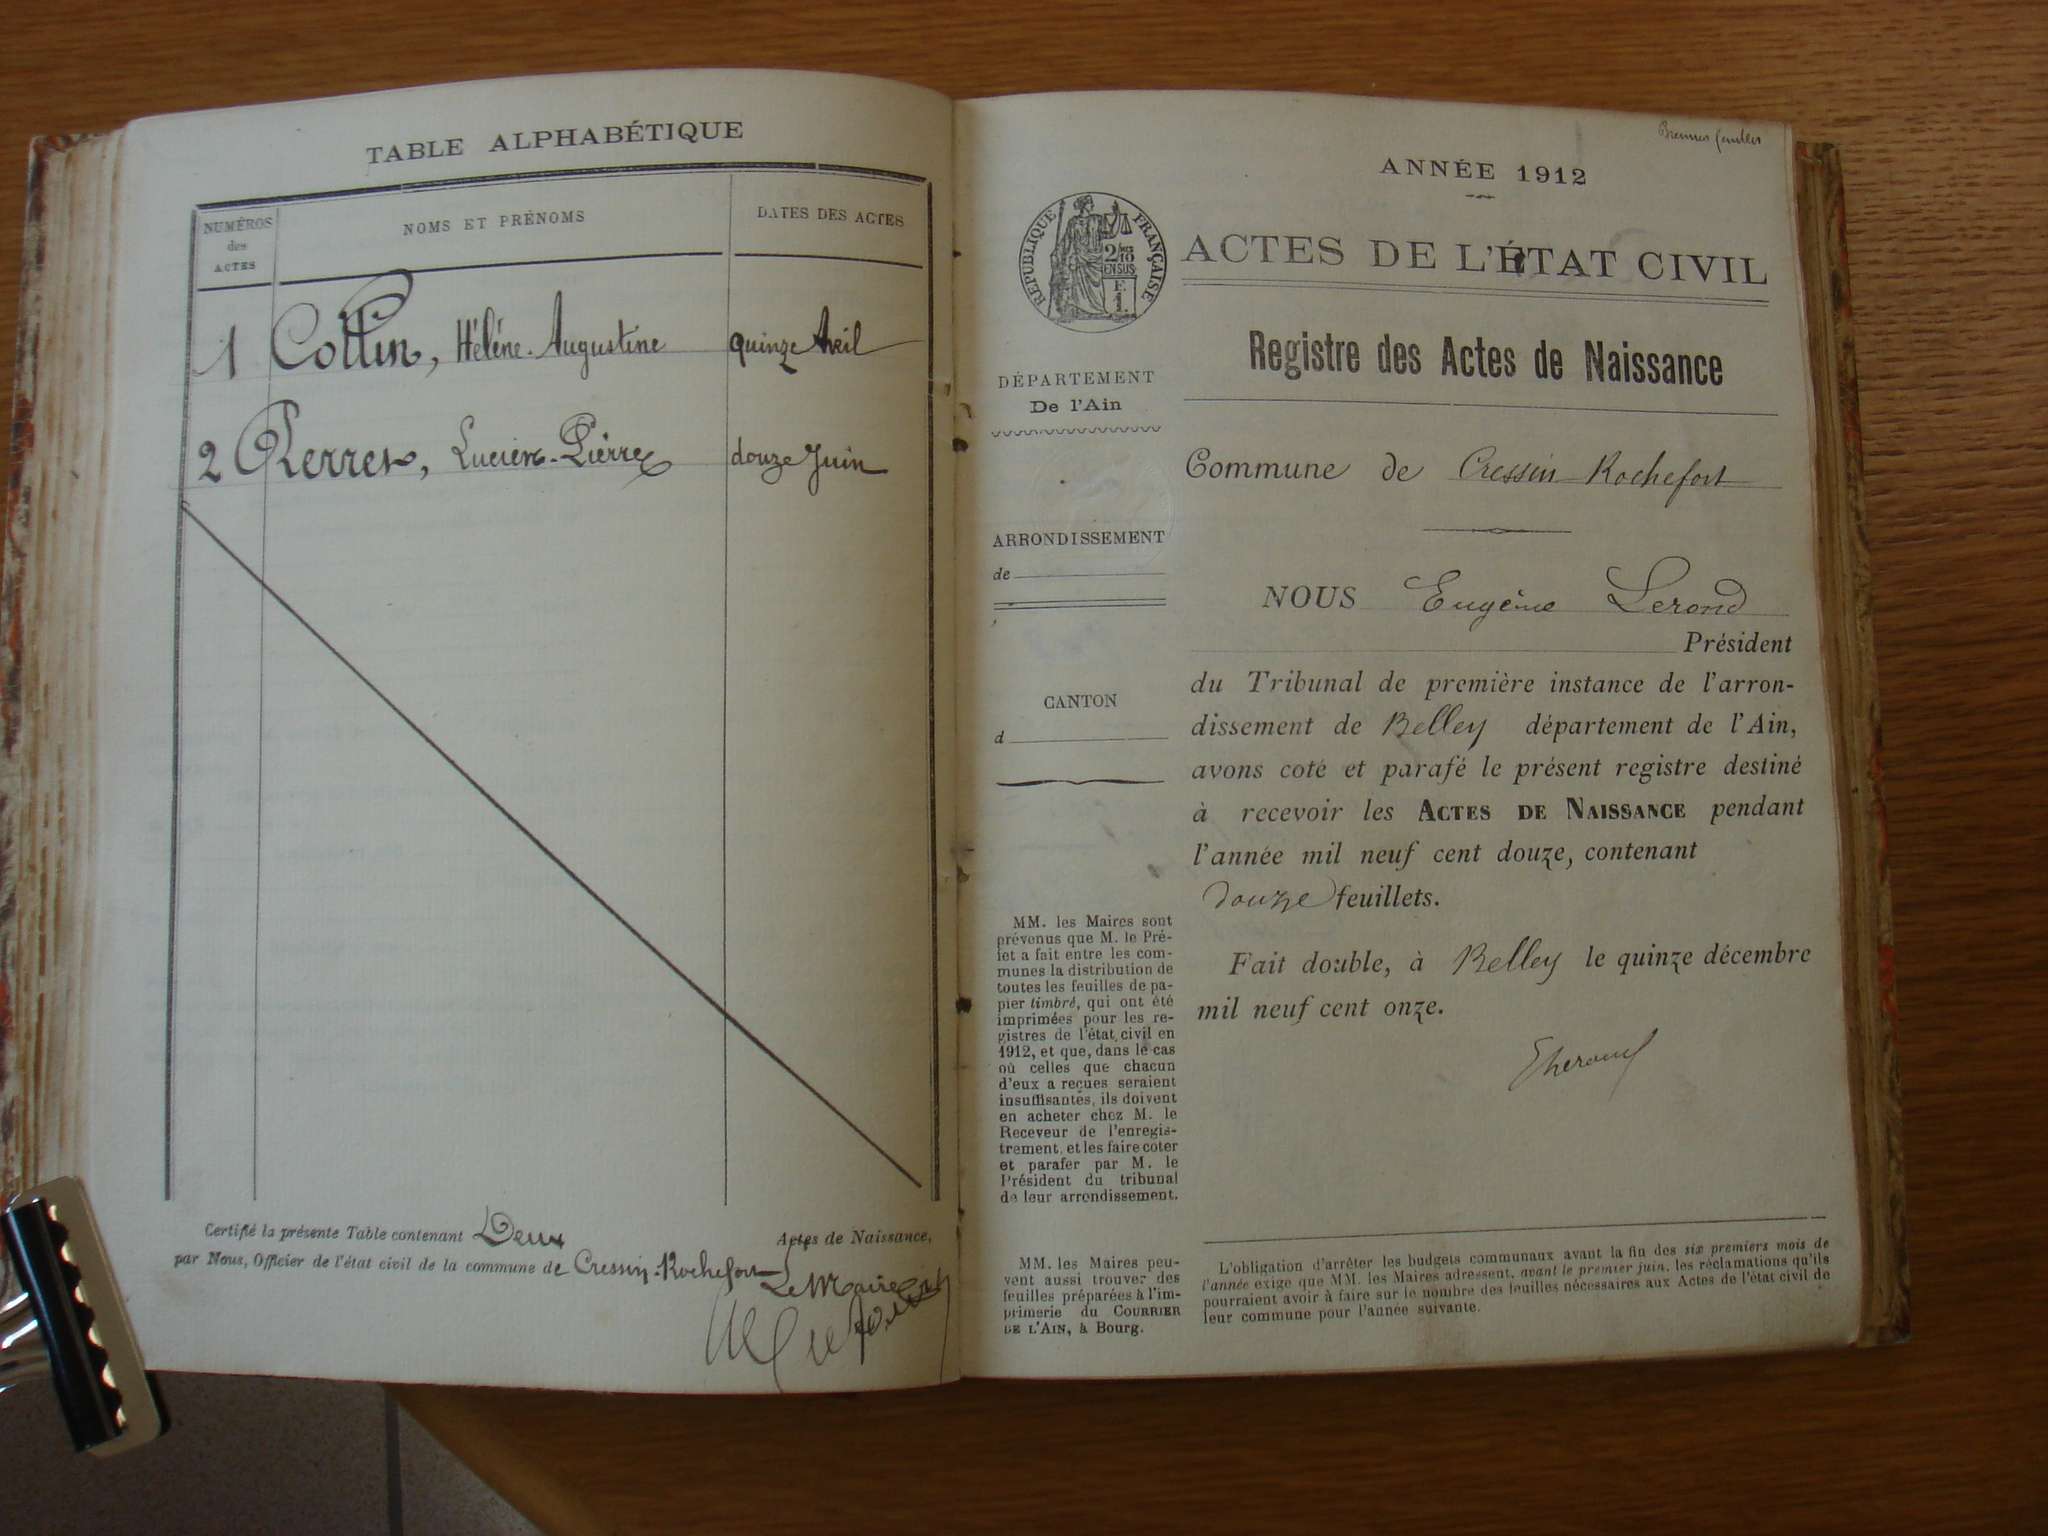 TABLE ALPHABÉTIQUE
NUMÉROS
des
ACTES
NOMS ET PRÉNOMS
DATES DES ACTES
1 Collin, Hélène-Augustine quinze Avril
2 Perret, Lucien-Pierre douze Juin
Certifié la présente Table contenant Deux Actes de Naissance,
par Nous, Officier de l'état civil de la commune de Cressin-Rochefort
Le Maire
ANNÉE 1912
RÉPUBLIQUE FRANÇAISE
2/10
EN SUS
F.
1.
ACTES DE L'ÉTAT CIVIL
Registre des Actes de Naissance
DÉPARTEMENT
De l'Ain
Commune de Cressin Rochefort
ARRONDISSEMENT
de
CANTON
d
NOUS Eugène Lerond
Président
du Tribunal de première instance de l'arron-
dissement de Belley département de l'Ain,
avons coté et parafé le présent registre destiné
à recevoir les ACTES DE NAISSANCE pendant
l'année mil neuf cent douze, contenant
douze feuillets.
Fait double, à Belley le quinze décembre
mil neuf cent onze.
MM. les Maires sont
prévenus que M. le Pré-
fet a fait entre les com-
munes la distribution de
toutes les feuilles de pa-
pier timbré, qui ont été
imprimées pour les re-
gistres de l'état civil en
1912, et que, dans le cas
où celles que chacun
d'eux a reçues seraient
insuffisantes, ils doivent
en acheter chez M. le
Receveur de l'enregis-
trement, et les faire coter
et parafer par M. le
Président du tribunal
de leur arrondissement.
MM. les Maires peu-
vent aussi trouver des
feuilles préparées à l'im-
primerie du COURRIER
DE L'AIN, à Bourg.
L'obligation d'arrêter les budgets communaux avant la fin des six premiers mois de
l'année exige que MM. les Maires adressent, avant le premier juin, les réclamations qu'ils
pourraient avoir à faire sur le nombre des feuilles nécessaires aux Actes de l'état civil de
leur commune pour l'année suivante.